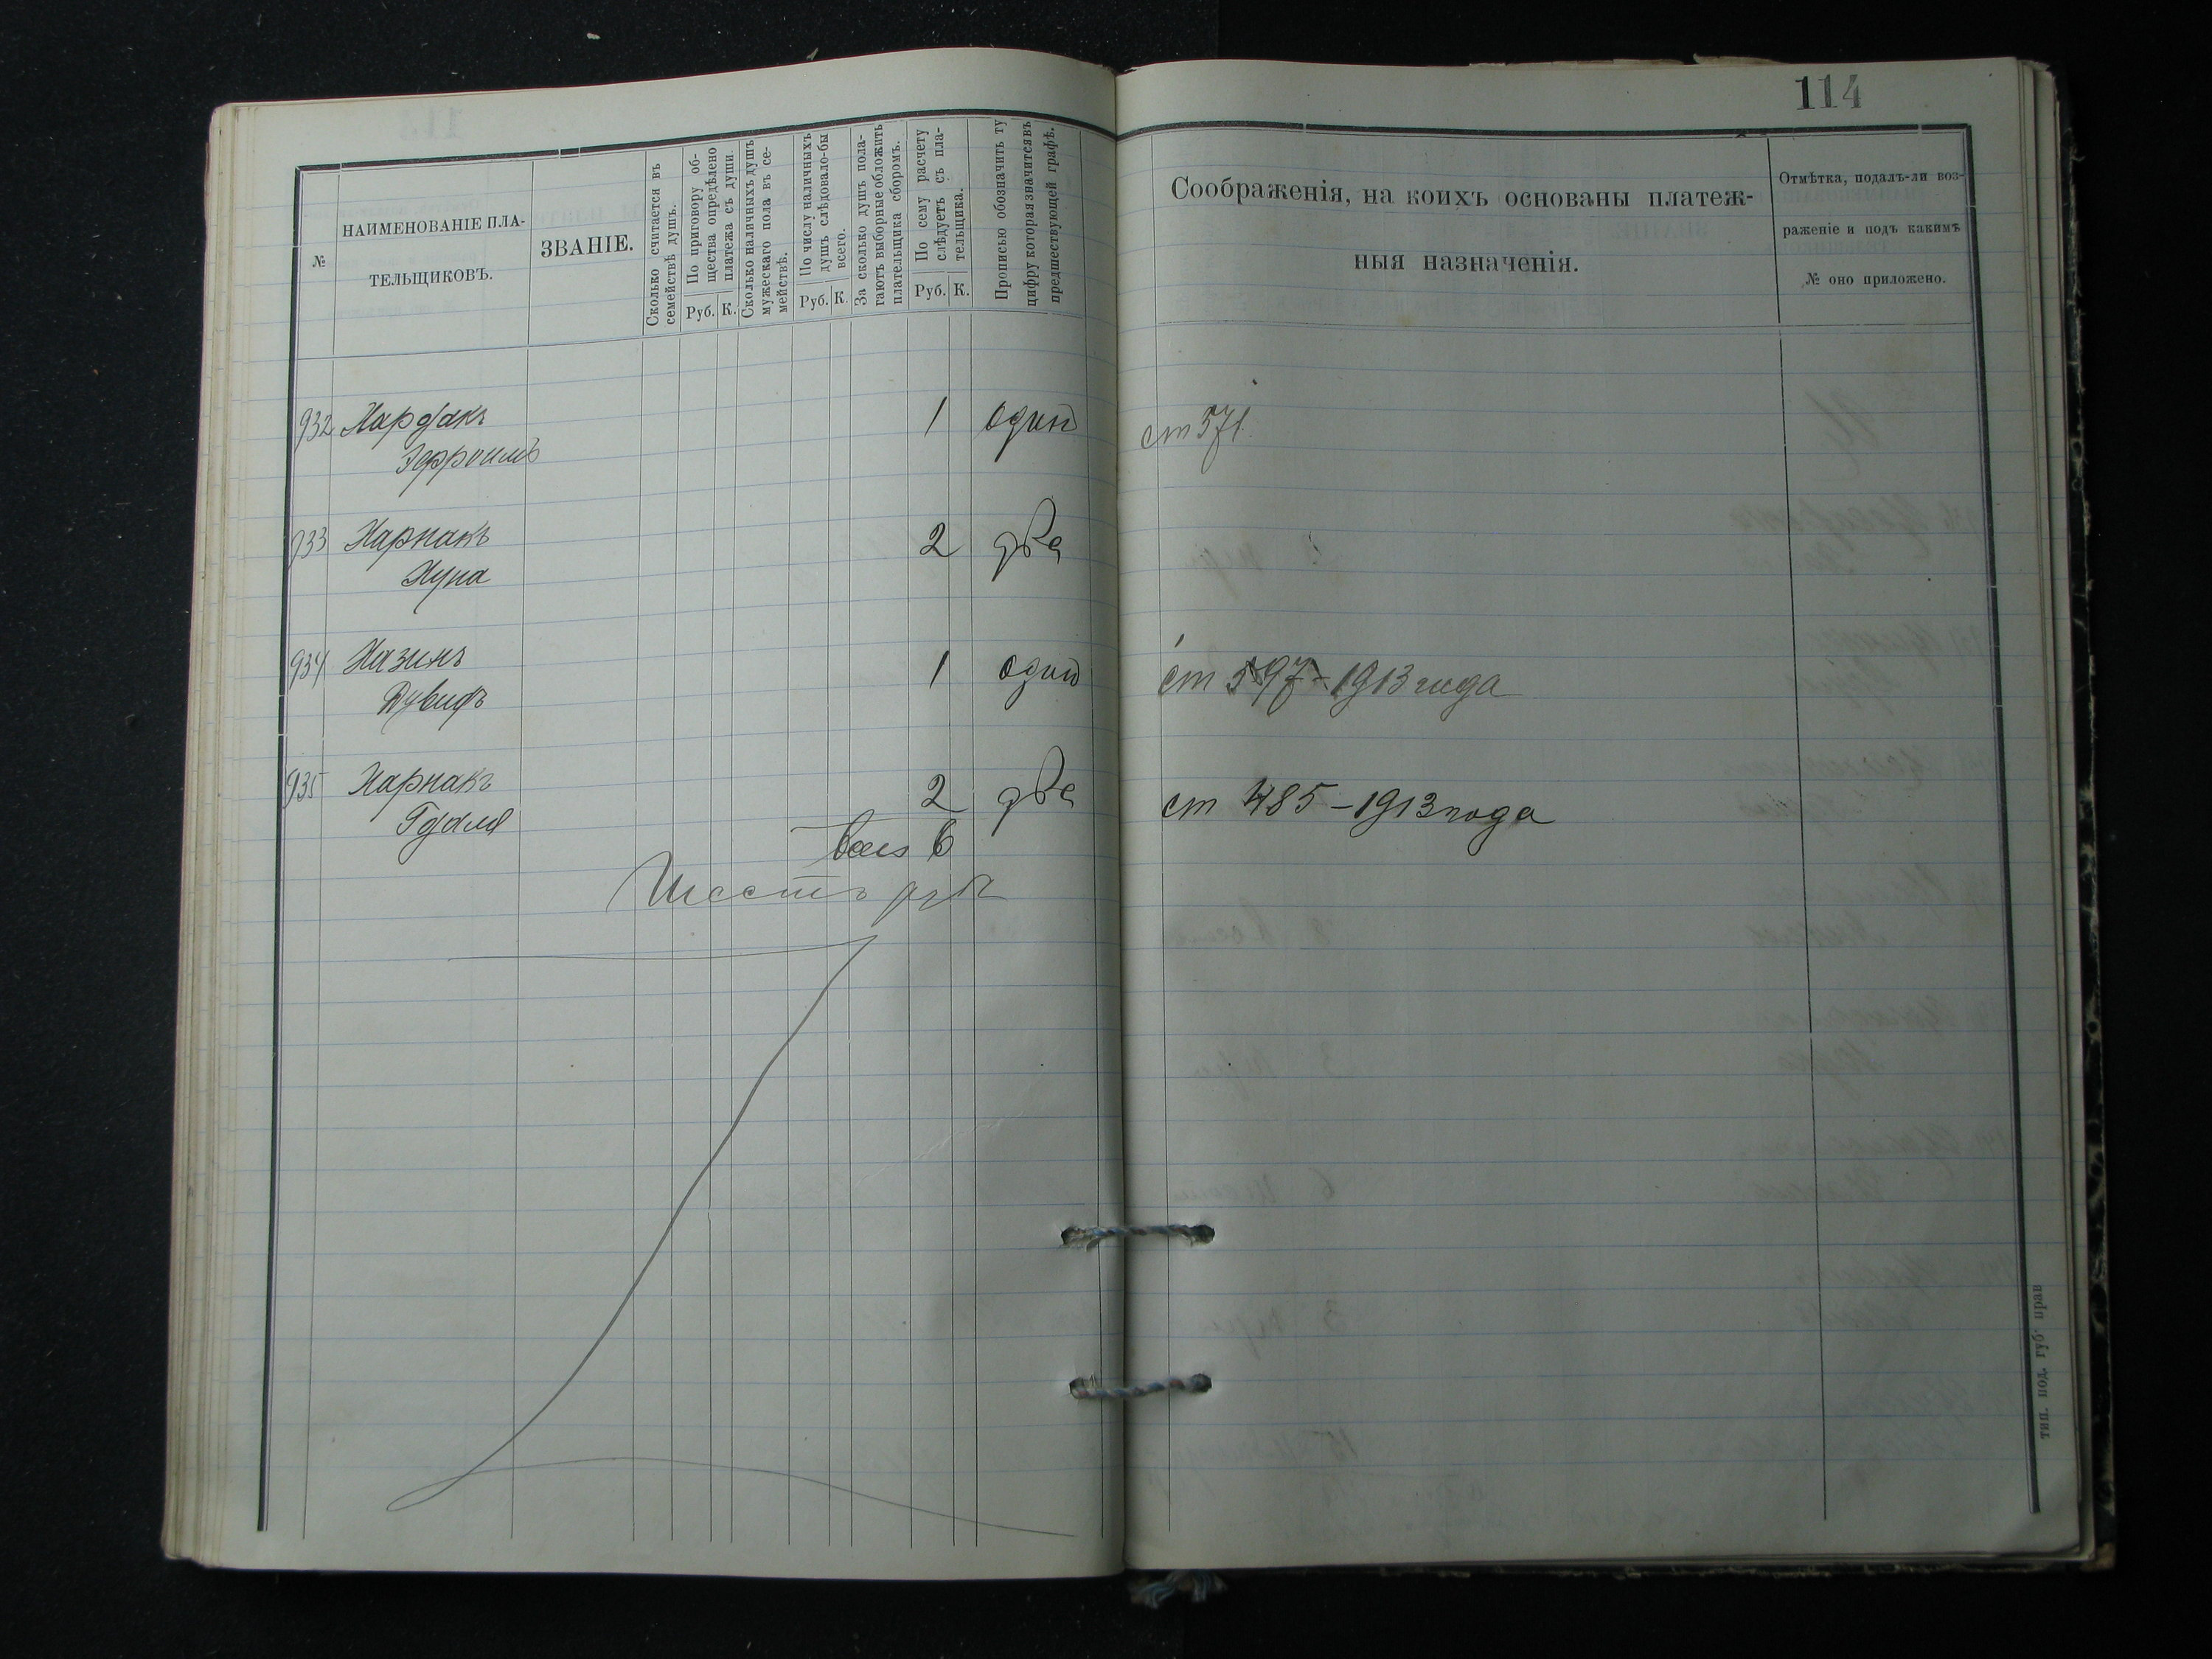 114
№
НАИМЕНОВАНІЕ ПЛА-
ТЕЛЬЩИКОВЪ.
ЗВАНІЕ.
Сколько считается въ
семействѣ душъ.
По приговору об-
щества опредѣлено
платежа съ души.
Руб. К.
Сколько наличныхъ душъ
мужескаго пола въ се-
мействѣ.
По числу наличныхъ
душъ слѣдовало-бы
всего.
Руб. К.
За сколько душъ пола-
гаютъ выборные обложить
плательщика сборомъ.
По сему расчету
слѣдуетъ съ пла-
тельщика.
Руб. К.
Прописью обозначить ту
цифру которая значится въ
предшествующей графѣ.
Соображенія, на коихъ основаны платеж-
ныя назначенія.
Отмѣтка, подалъ-ли воз-
раженіе и подъ какимъ
№ оно приложено.
932 Хардакъ 1 один ст 571.
Эфроимъ
933 Харнакъ 2 два
Нуна
934 Хазинъ 1 один ст 597 - 1913 года
Дувидъ
935 Харнакъ 2 два ст 485 - 1913 года
Гдаля
6
Шесть руб
тип. под. губ. прав